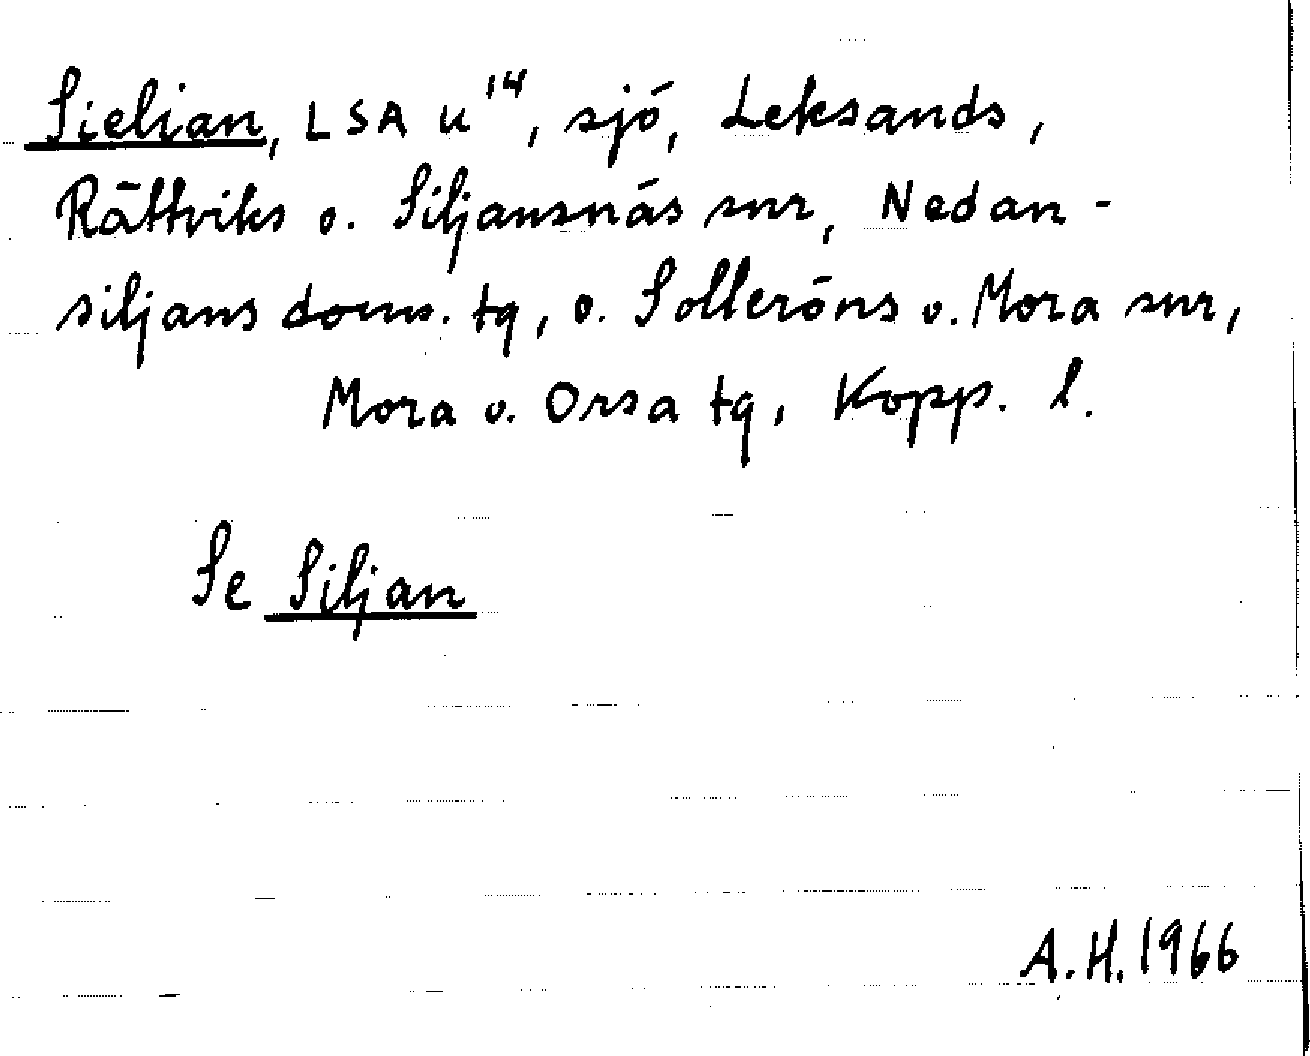 Sielian, LSA U¹⁴, sjö, Leksands,
Rättviks o. Siljansnäs snr, Nedan-
siljans doms. tg, o. Solleröns o. Mora snr,
Mora o. Orsa tg, Kopp. l.
Se Siljan
A.H. 1966